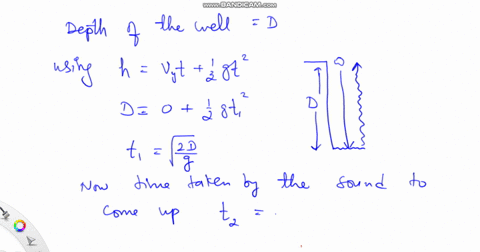 WWW.BANDICAM.COM
Depth of the well = D
using h = V_y t + 1/2 g t^2
D = 0 + 1/2 g t_1^2
D
t_1 = √(2D/g)
Now time taken by the sound to
come up t_2 =